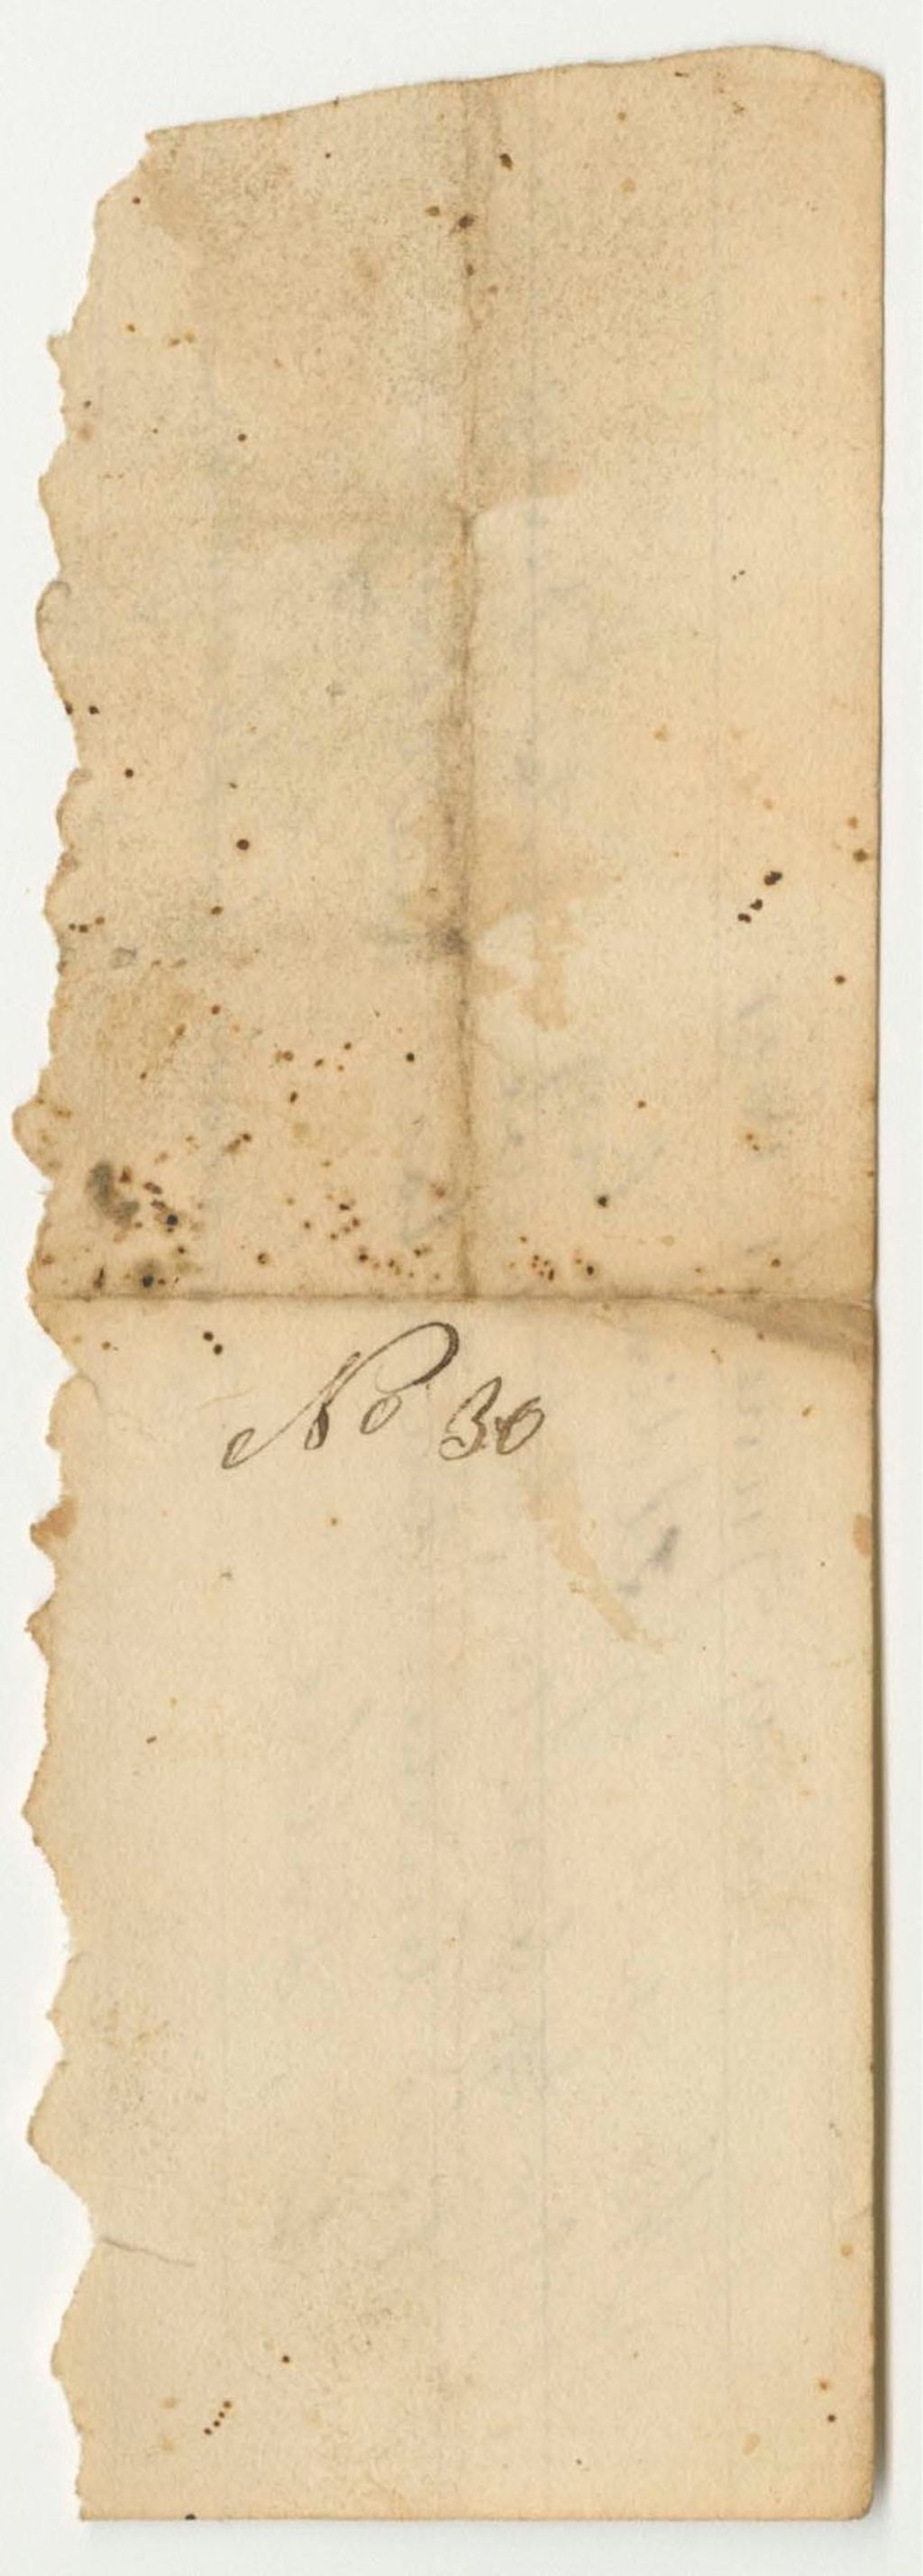 No 30